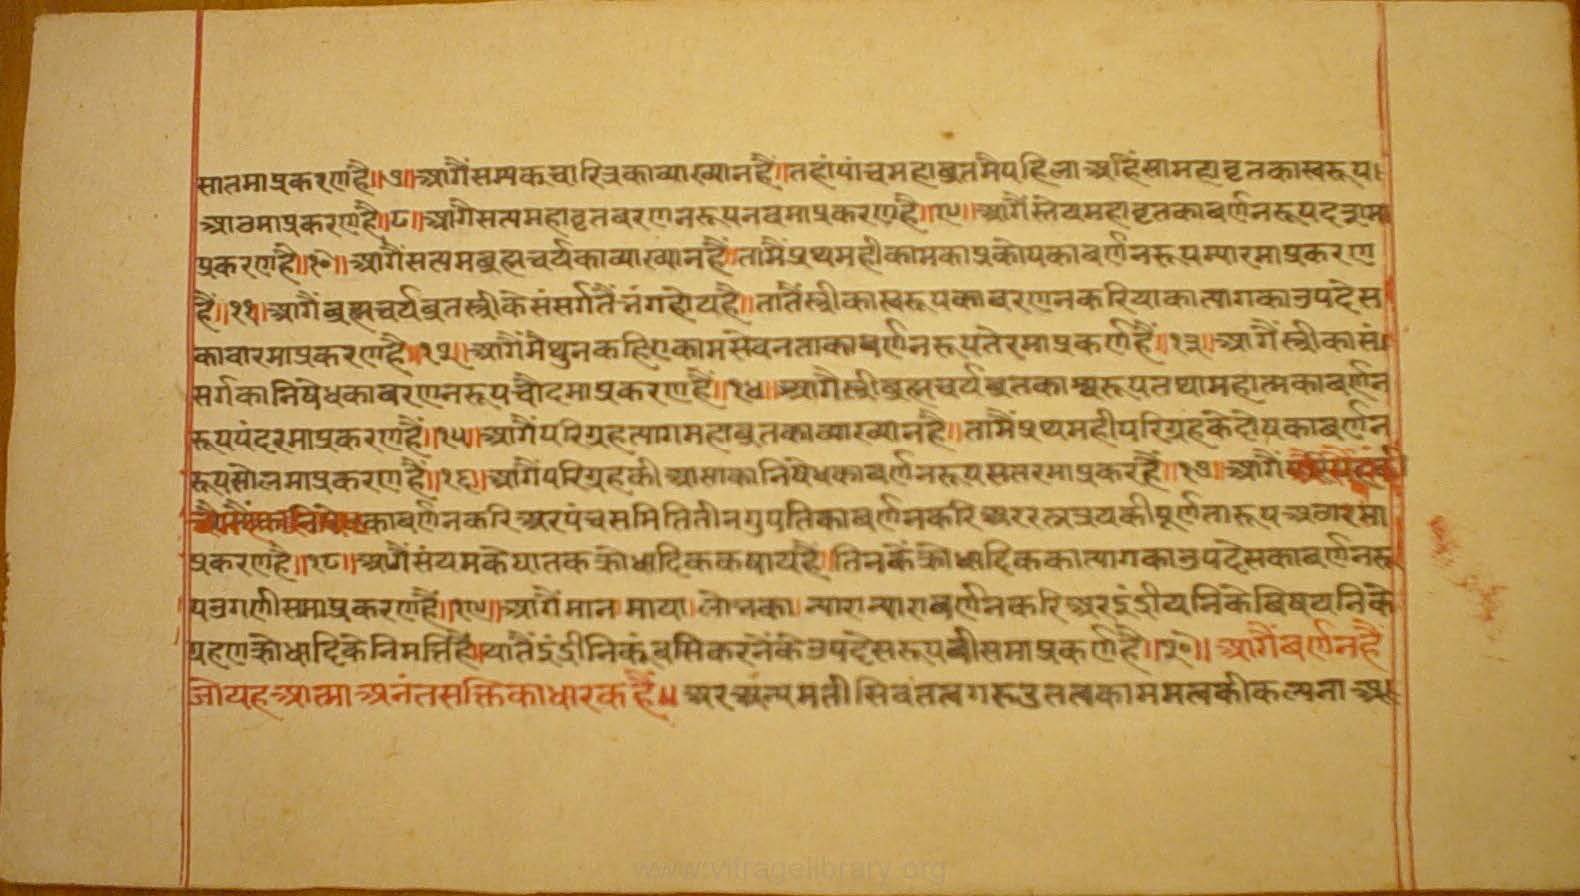 सातमाप्रकरणहै॥७॥आगैंसम्यकचारित्रकाव्याख्यानहैं॥तहांपांचमहाव्रतमैपहिलाअहिंसामहाव्रतकास्वरूप।
आठमाप्रकरणहै॥८॥आगैसत्यमहाव्रतवरणनरूपनवमाप्रकरणहै॥९॥आगैंस्तेयमहाव्रतकाबर्णनरूपदशमा
प्रकरणहै॥१०॥आगैंसत्यमब्रह्मचर्यकाव्याख्यानहैं॥तामैंप्रथमहीकामकाप्रकोपकाबर्णनरूपग्यारमाप्रकरण
हैं॥११॥आगैंब्रह्मचर्यव्रतस्त्रीकेसंसर्गतैंनंगहोयहै॥तातैंस्त्रीकास्वरूपकावरणनकरियाकात्यागकाउपदेस
कावारमाप्रकरणहै॥१२॥आगैंमैथुनकहिएकामसेवनताकाबर्णनरूपतेरमाप्रकर्णहैं॥१३॥आगैंस्त्रीकासं।
सर्गकानिषेधकाबरणनरूपचौदमाप्रकरणहैं॥१४॥आगैस्त्रीब्रह्मचर्यब्रतकास्वरूपतथामहात्मकाबर्णन
रूपपंदरमाप्रकरणहैं॥१५॥आगैंपरिग्रहत्यागमहाव्रतकाव्याख्यानहै॥तामैंप्रथमहीपरिग्रहकेदोषकाबर्णन
रूपसोलमाप्रकरणहैं॥१६॥आगैंपरिग्रहकीआसाकानिषेधकाबर्णनरूपसतरमाप्रकरहैं॥१७॥आगैं
काबर्णनकरिअरपंचसमितितीनगुपतिकाबर्णनकरिअररत्नत्रयकीपूर्णतारूपअठारमा
प्रकरणहै॥१८॥आगैंसंयमकेघातकक्रोधादिककषायहैं॥तिनकेंक्रोधादिककात्यागकाउपदेसकाबर्णनरू
पउगणीसमाप्रकरणहैं॥१९॥आगैंमान।माया।लोभका।न्यारान्याराबर्णनकरिअरइंद्रीयनिकेबिषयनिके
ग्रहणक्रोधादिकेनिमत्तिहैं॥यातैंइंद्रीनिकूंवसिकरनेंकेउपदेसरूपबीसमाप्रकर्णहै॥२०॥आगैंबर्णनहैं
जोयहआत्माअनंतसक्तिकाधारकहैं॥अरअन्यमतीसिवतत्वगरूडतत्वकाममत्वकीकल्पनाअ